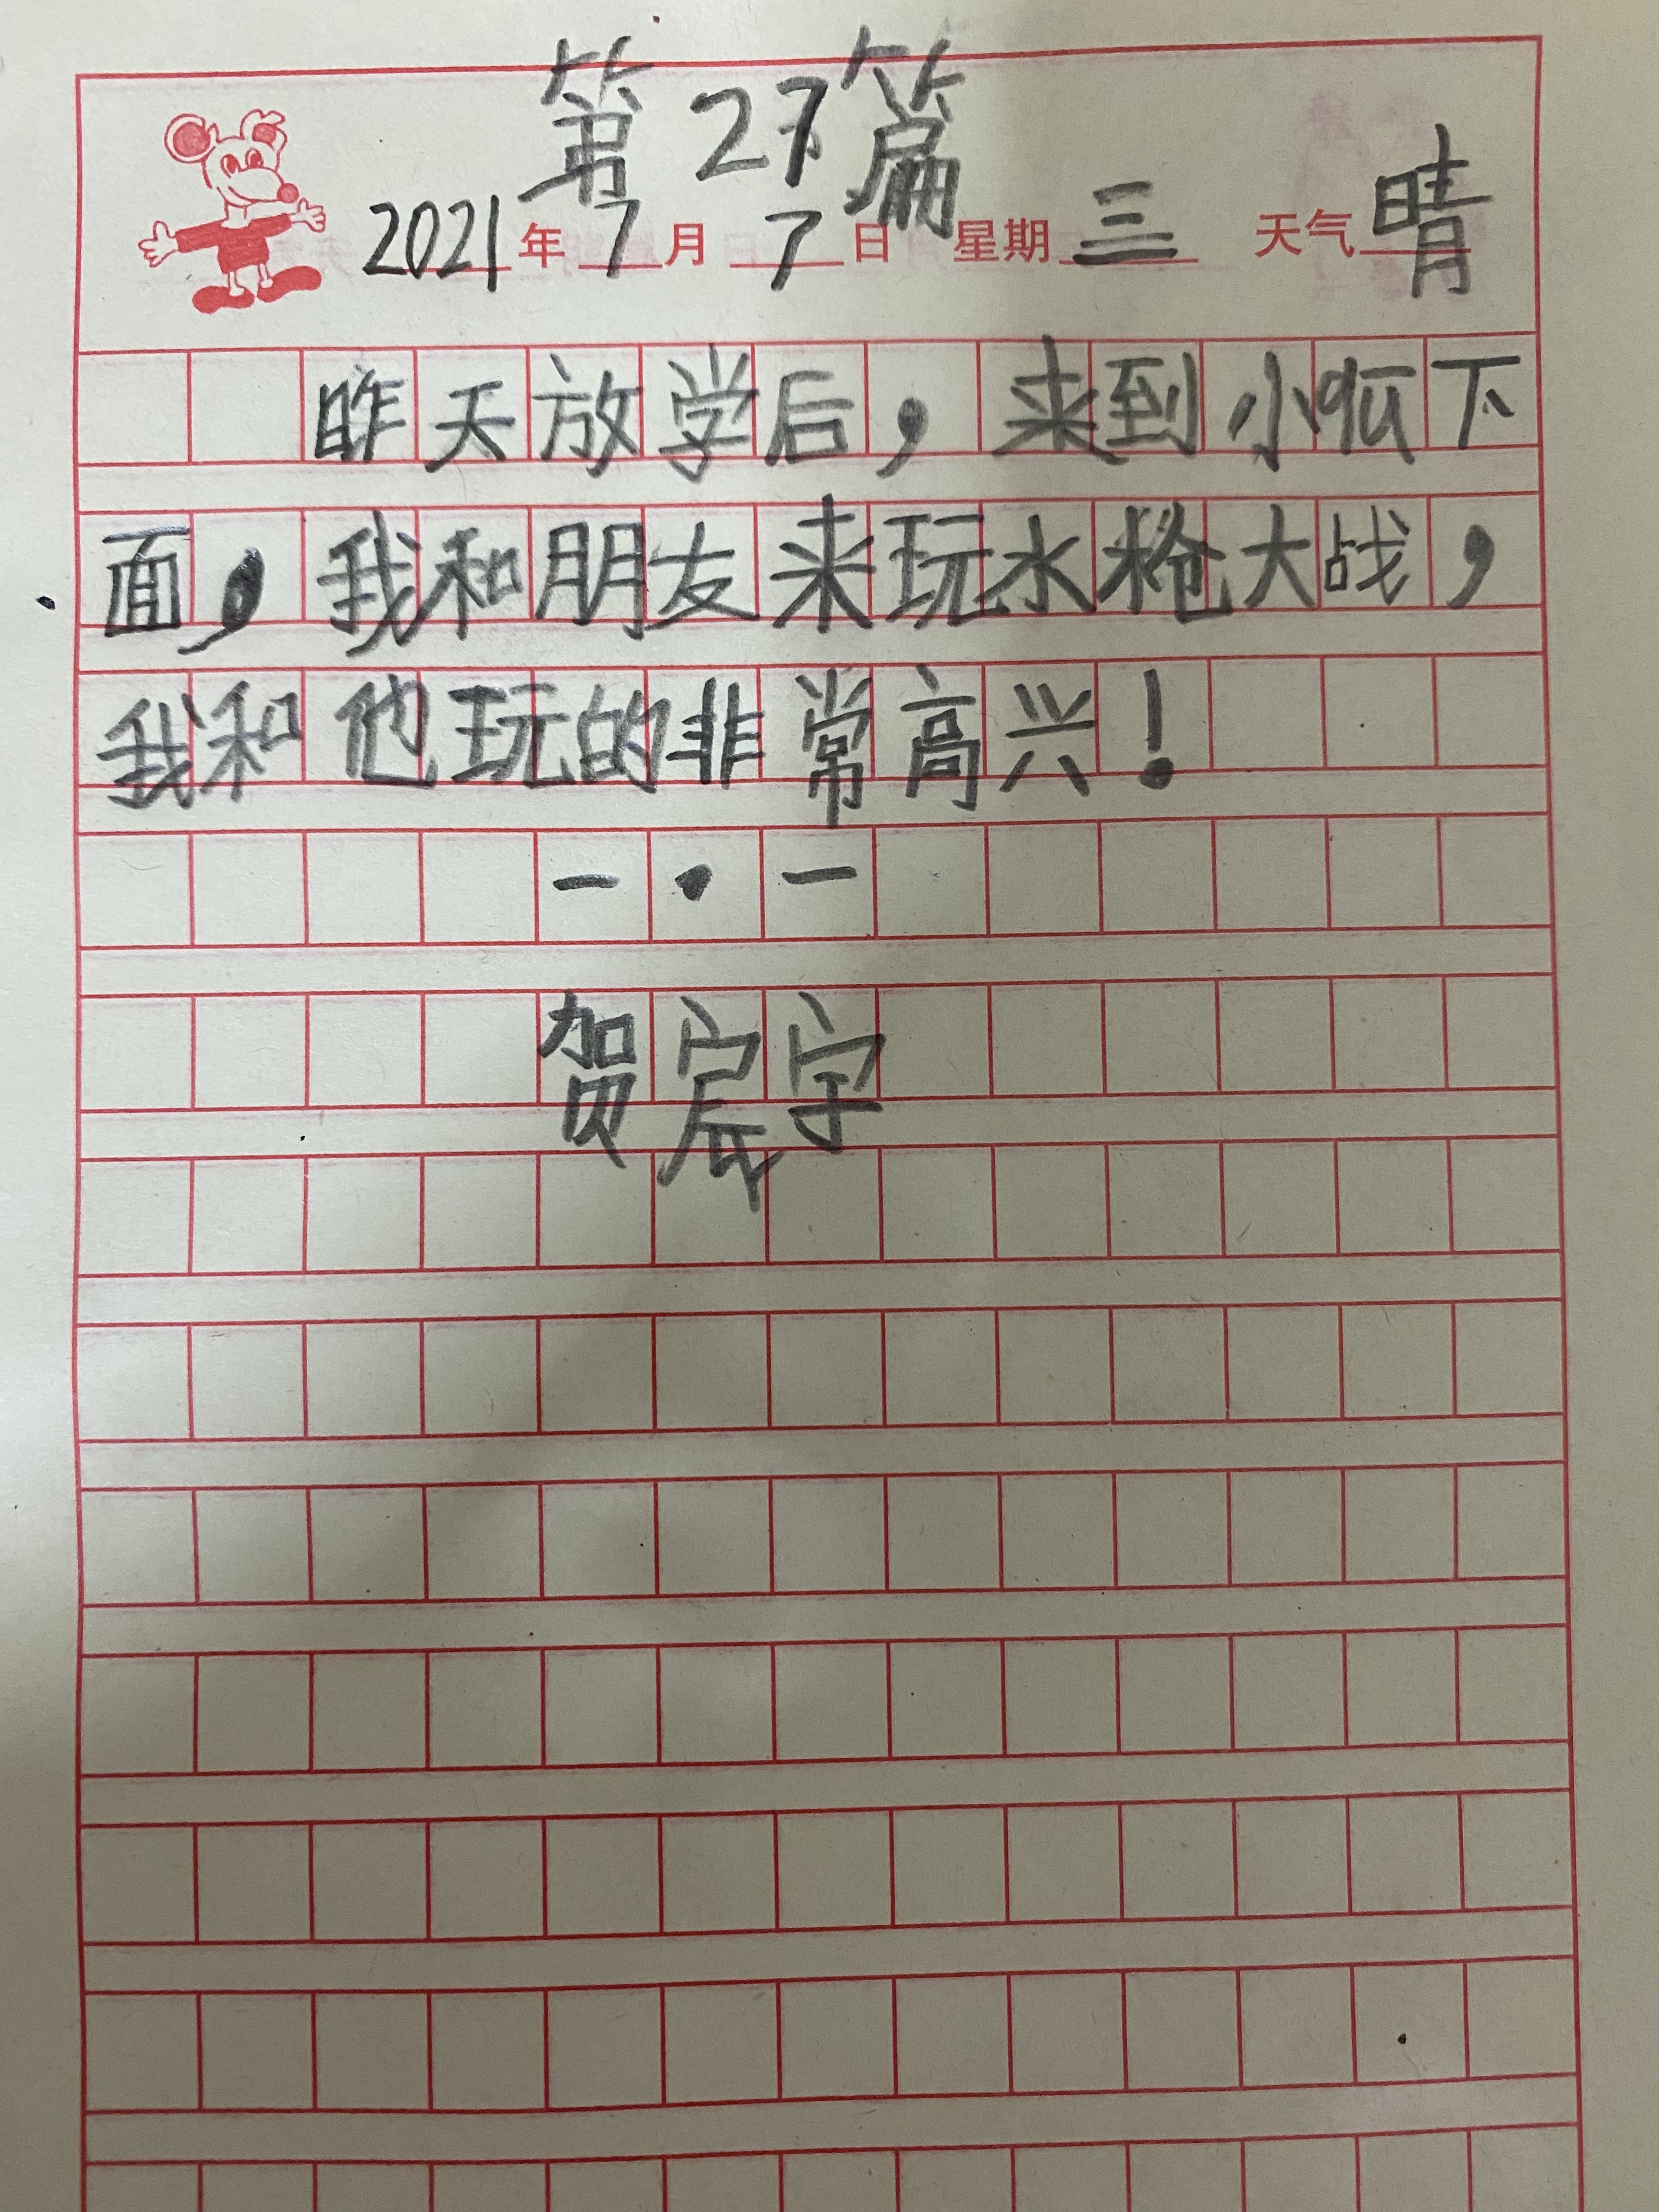 第27篇
2021年7月7日 星期三 天气晴
昨天放学后，来到小区下
面，我和朋友来玩水枪大战，
我和他玩的非常高兴！
一·一
贺宸宇